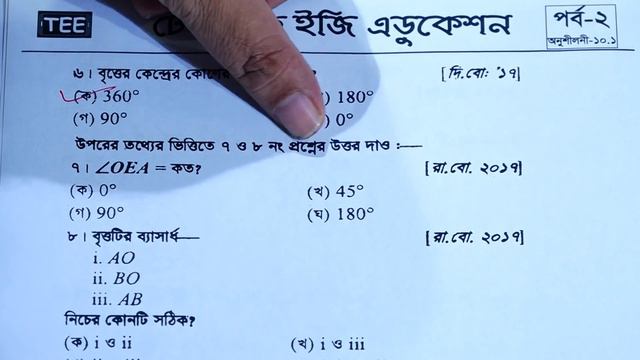 TEE ইজি এডুকেশন পর্ব-২
অনুশীলনী-১০.১
৬। বৃত্তের কেন্দ্রের [দি.বো: '১৭]
(ক) 360° 180°
(গ) 90° 0°
উপরের তথ্যের ভিত্তিতে ৭ ও ৮ নং প্রশ্নের উত্তর দাও :—
৭। ∠OEA = কত? [রা.বো. ২০১৭]
(ক) 0° (খ) 45°
(গ) 90° (ঘ) 180°
৮। বৃত্তটির ব্যাসার্ধ— [রা.বো. ২০১৭]
i. AO
ii. BO
iii. AB
নিচের কোনটি সঠিক?
(ক) i ও ii (খ) i ও iii